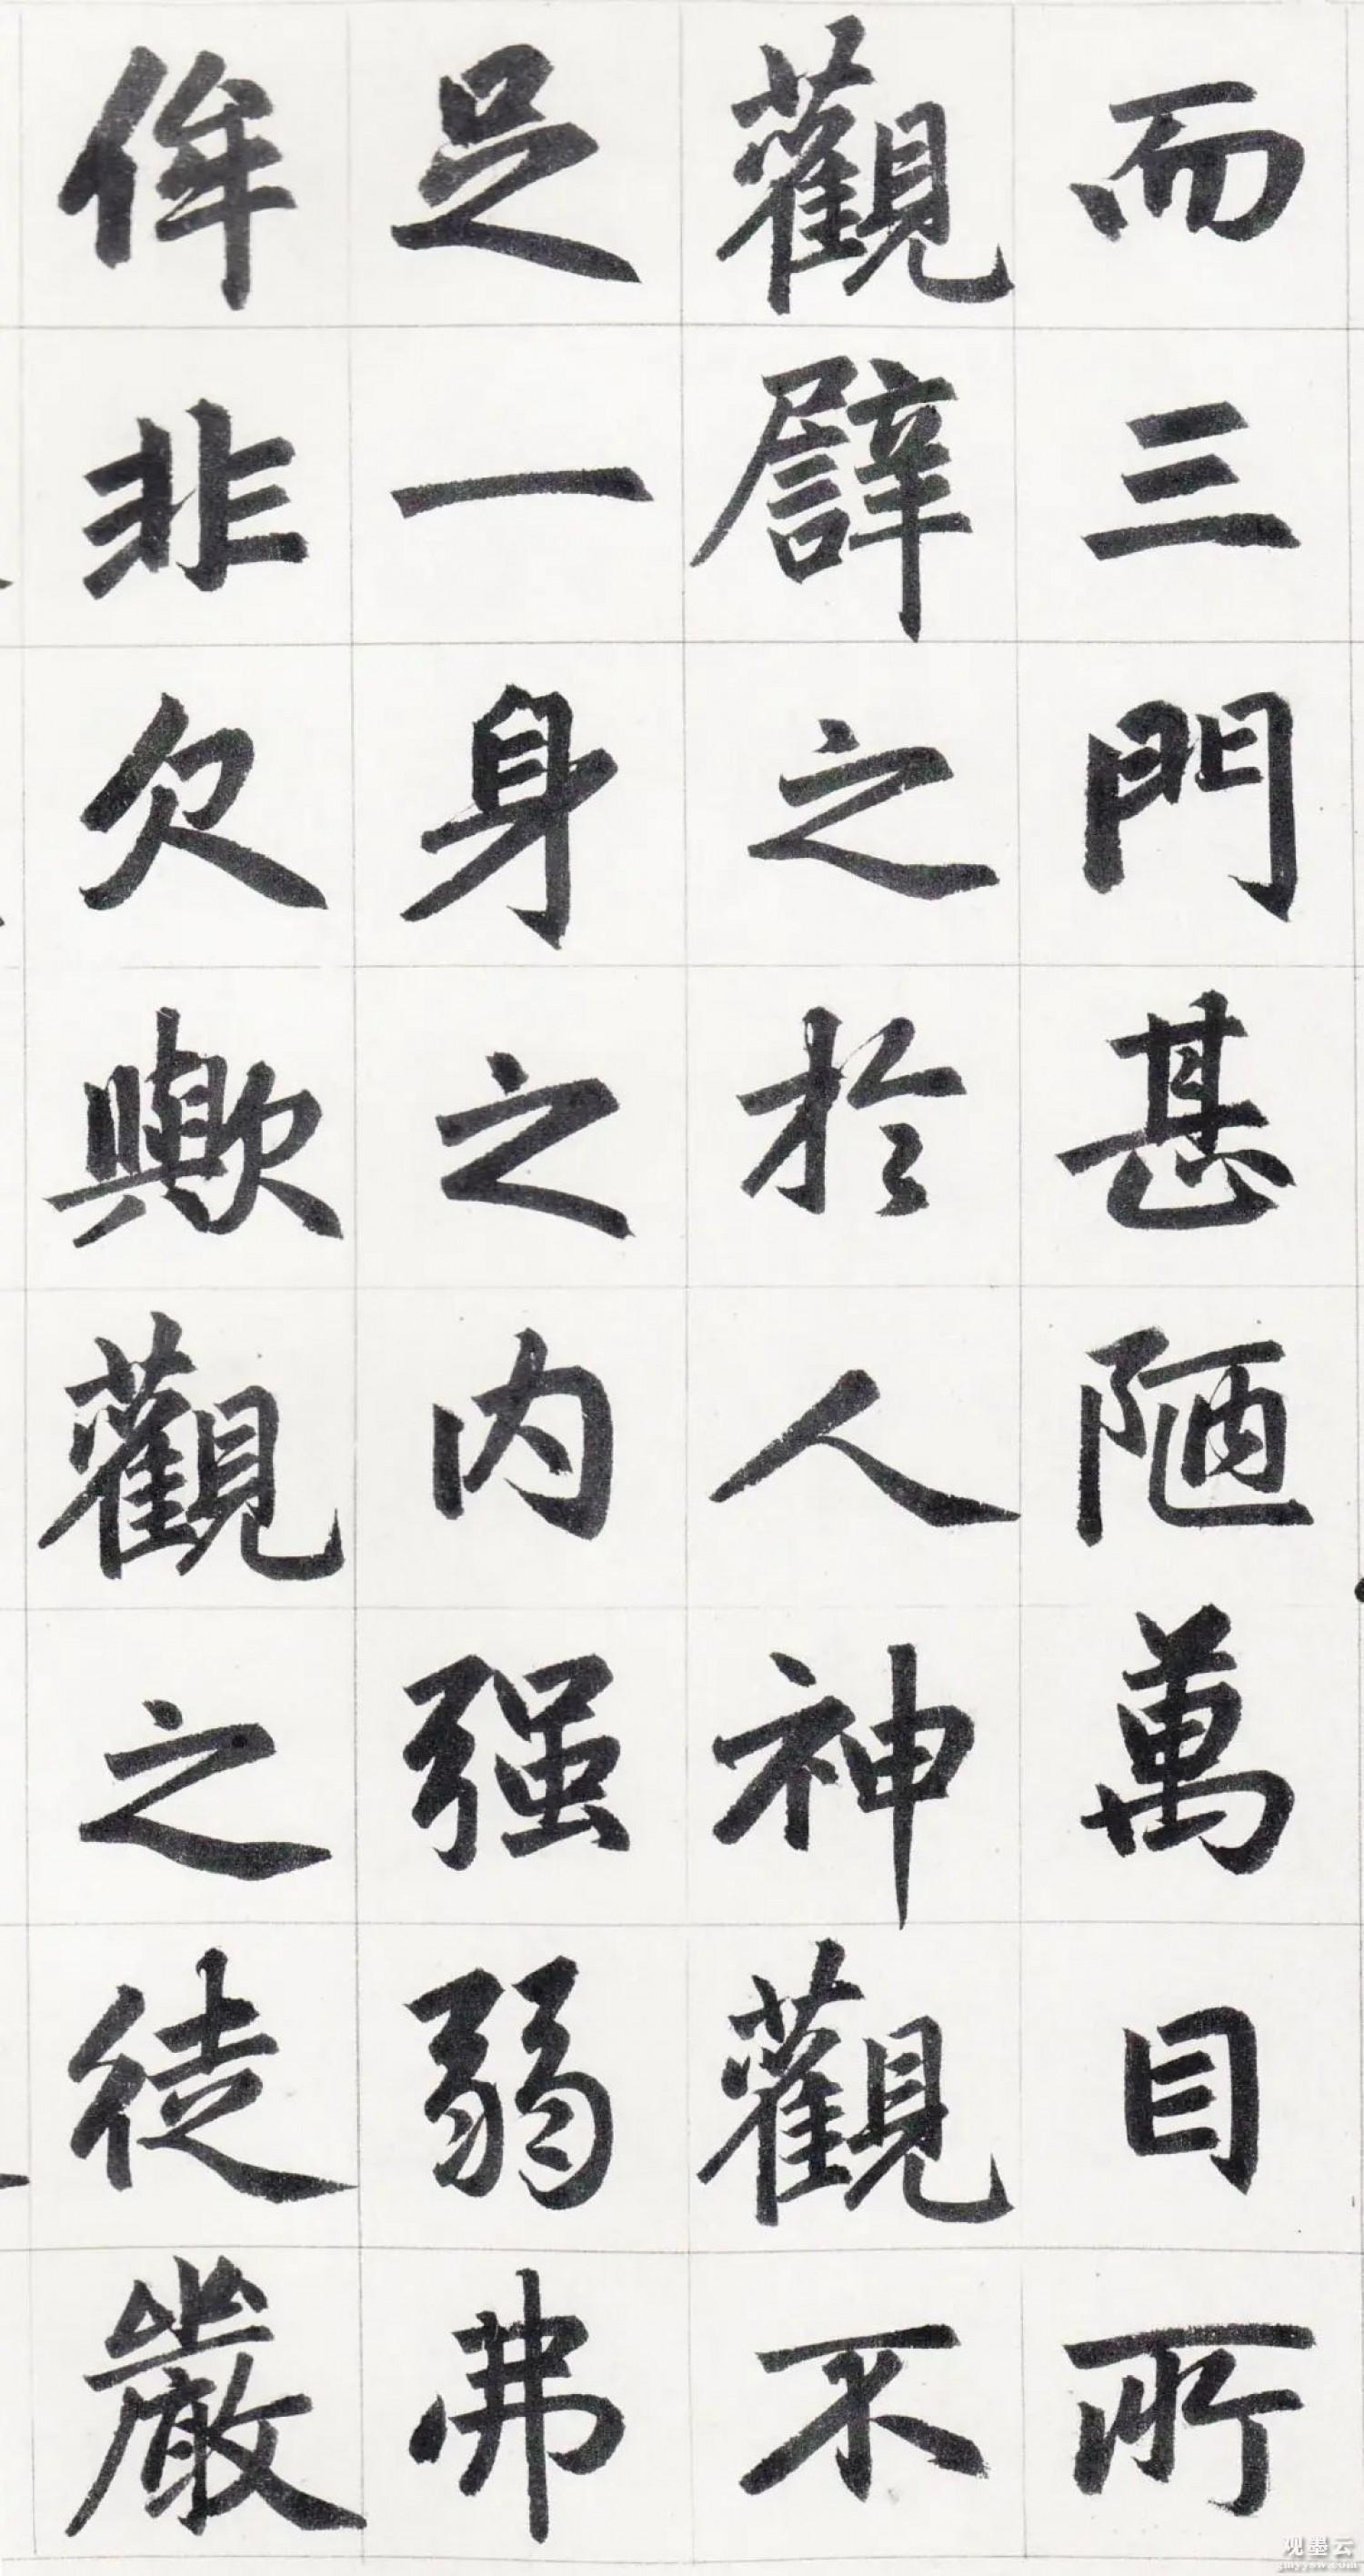 而三門甚陋萬目所
觀譬之於人神觀不
足一身之内强弱弗
侔非欠歟觀之徒嚴
观墨云